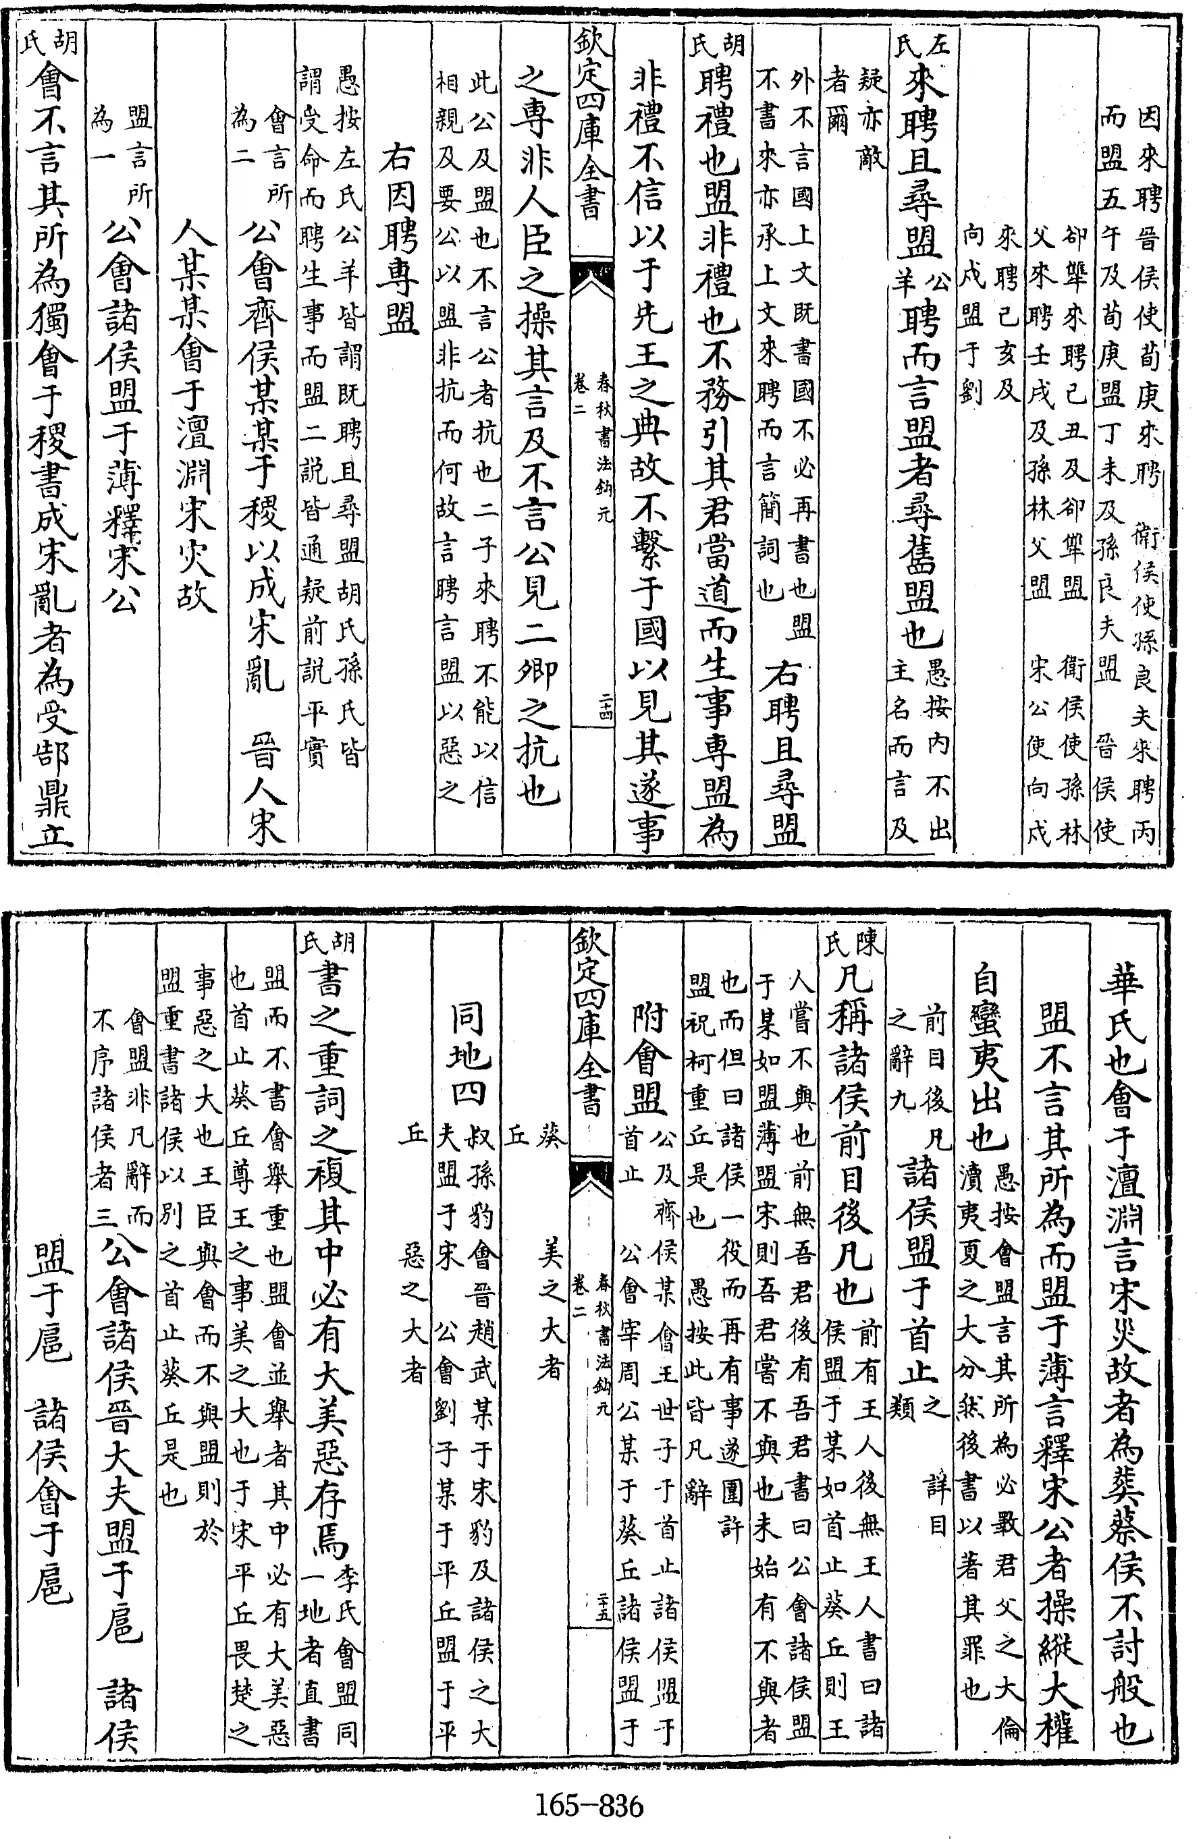 因來聘晉侯使荀庚來聘 衛侯使孫良夫來聘丙
而盟五午及荀庚盟丁未及孫良夫盟 晉侯使
郤犨來聘己丑及郤犨盟 衛侯使孫林
父來聘壬戌及孫林父盟 宋公使向戌
來聘己亥及
向戌盟于劉
左氏來聘且尋盟公羊聘而言盟者尋舊盟也愚按內不出
主名而言及
疑亦敵
者爾
外不言國上文既書國不必再書也盟
不書來亦承上文來聘而言簡詞也 右聘且尋盟
胡氏聘禮也盟非禮也不務引其君當道而生事專盟為
非禮不信以于先王之典故不繫于國以見其遂事
欽定四庫全書 春秋書法鉤元 卷二 二十四
之專非人臣之操其言及不言公見二卿之抗也
此公及盟也不言公者抗也二子來聘不能以信
相親及要公以盟非抗而何故言聘言盟以惡之
右因聘專盟
愚按左氏公羊皆謂既聘且尋盟胡氏孫氏皆
謂受命而聘生事而盟二說皆通疑前說平實
會言所
為二 公會齊侯某某于稷以成宋亂 晉人宋
人某某會于澶淵宋灾故
盟言所
為一 公會諸侯盟于薄釋宋公
胡氏會不言其所為獨會于稷書成宋亂者為受郜鼎立
華氏也會于澶淵言宋災故者為葬蔡侯不討般也
盟不言其所為而盟于薄言釋宋公者操縱大權
自蠻夷出也愚按會盟言其所為必斁君父之大倫
瀆夷夏之大分然後書以著其罪也
前目後凡
之辭九 諸侯盟于首止之類 詳目
陳氏凡稱諸侯前目後凡也前有王人後無王人書曰諸
侯盟于某如首止葵丘則王
人嘗不與也前無吾君後有吾君書曰公會諸侯盟
于某如盟薄盟宋則吾君嘗不與也未始有不與者
也而但曰諸侯一役而再有事遂圍許
盟祝柯重丘是也 愚按此皆凡辭
附會盟公及齊侯某會王世子于首止諸侯盟于
首止 公會宰周公某于葵丘諸侯盟于
欽定四庫全書 春秋書法鉤元 卷二 二十五
葵 美之大者
丘
同地四叔孫豹會晉趙武某于宋豹及諸侯之大
夫盟于宋 公會劉子某于平丘盟于平
丘 惡之大者
胡氏書之重詞之複其中必有大美惡存焉李氏會盟同
一地者直書
盟而不書會舉重也盟會並舉者其中必有大美惡
也首止葵丘尊王之事美之大也于宋平丘畏楚之
事惡之大也王臣與會而不與盟則於
盟重書諸侯以別之首止葵丘是也
會盟非凡辭而
不序諸侯者三 公會諸侯晉大夫盟于扈 諸侯
盟于扈 諸侯會于扈
165-836